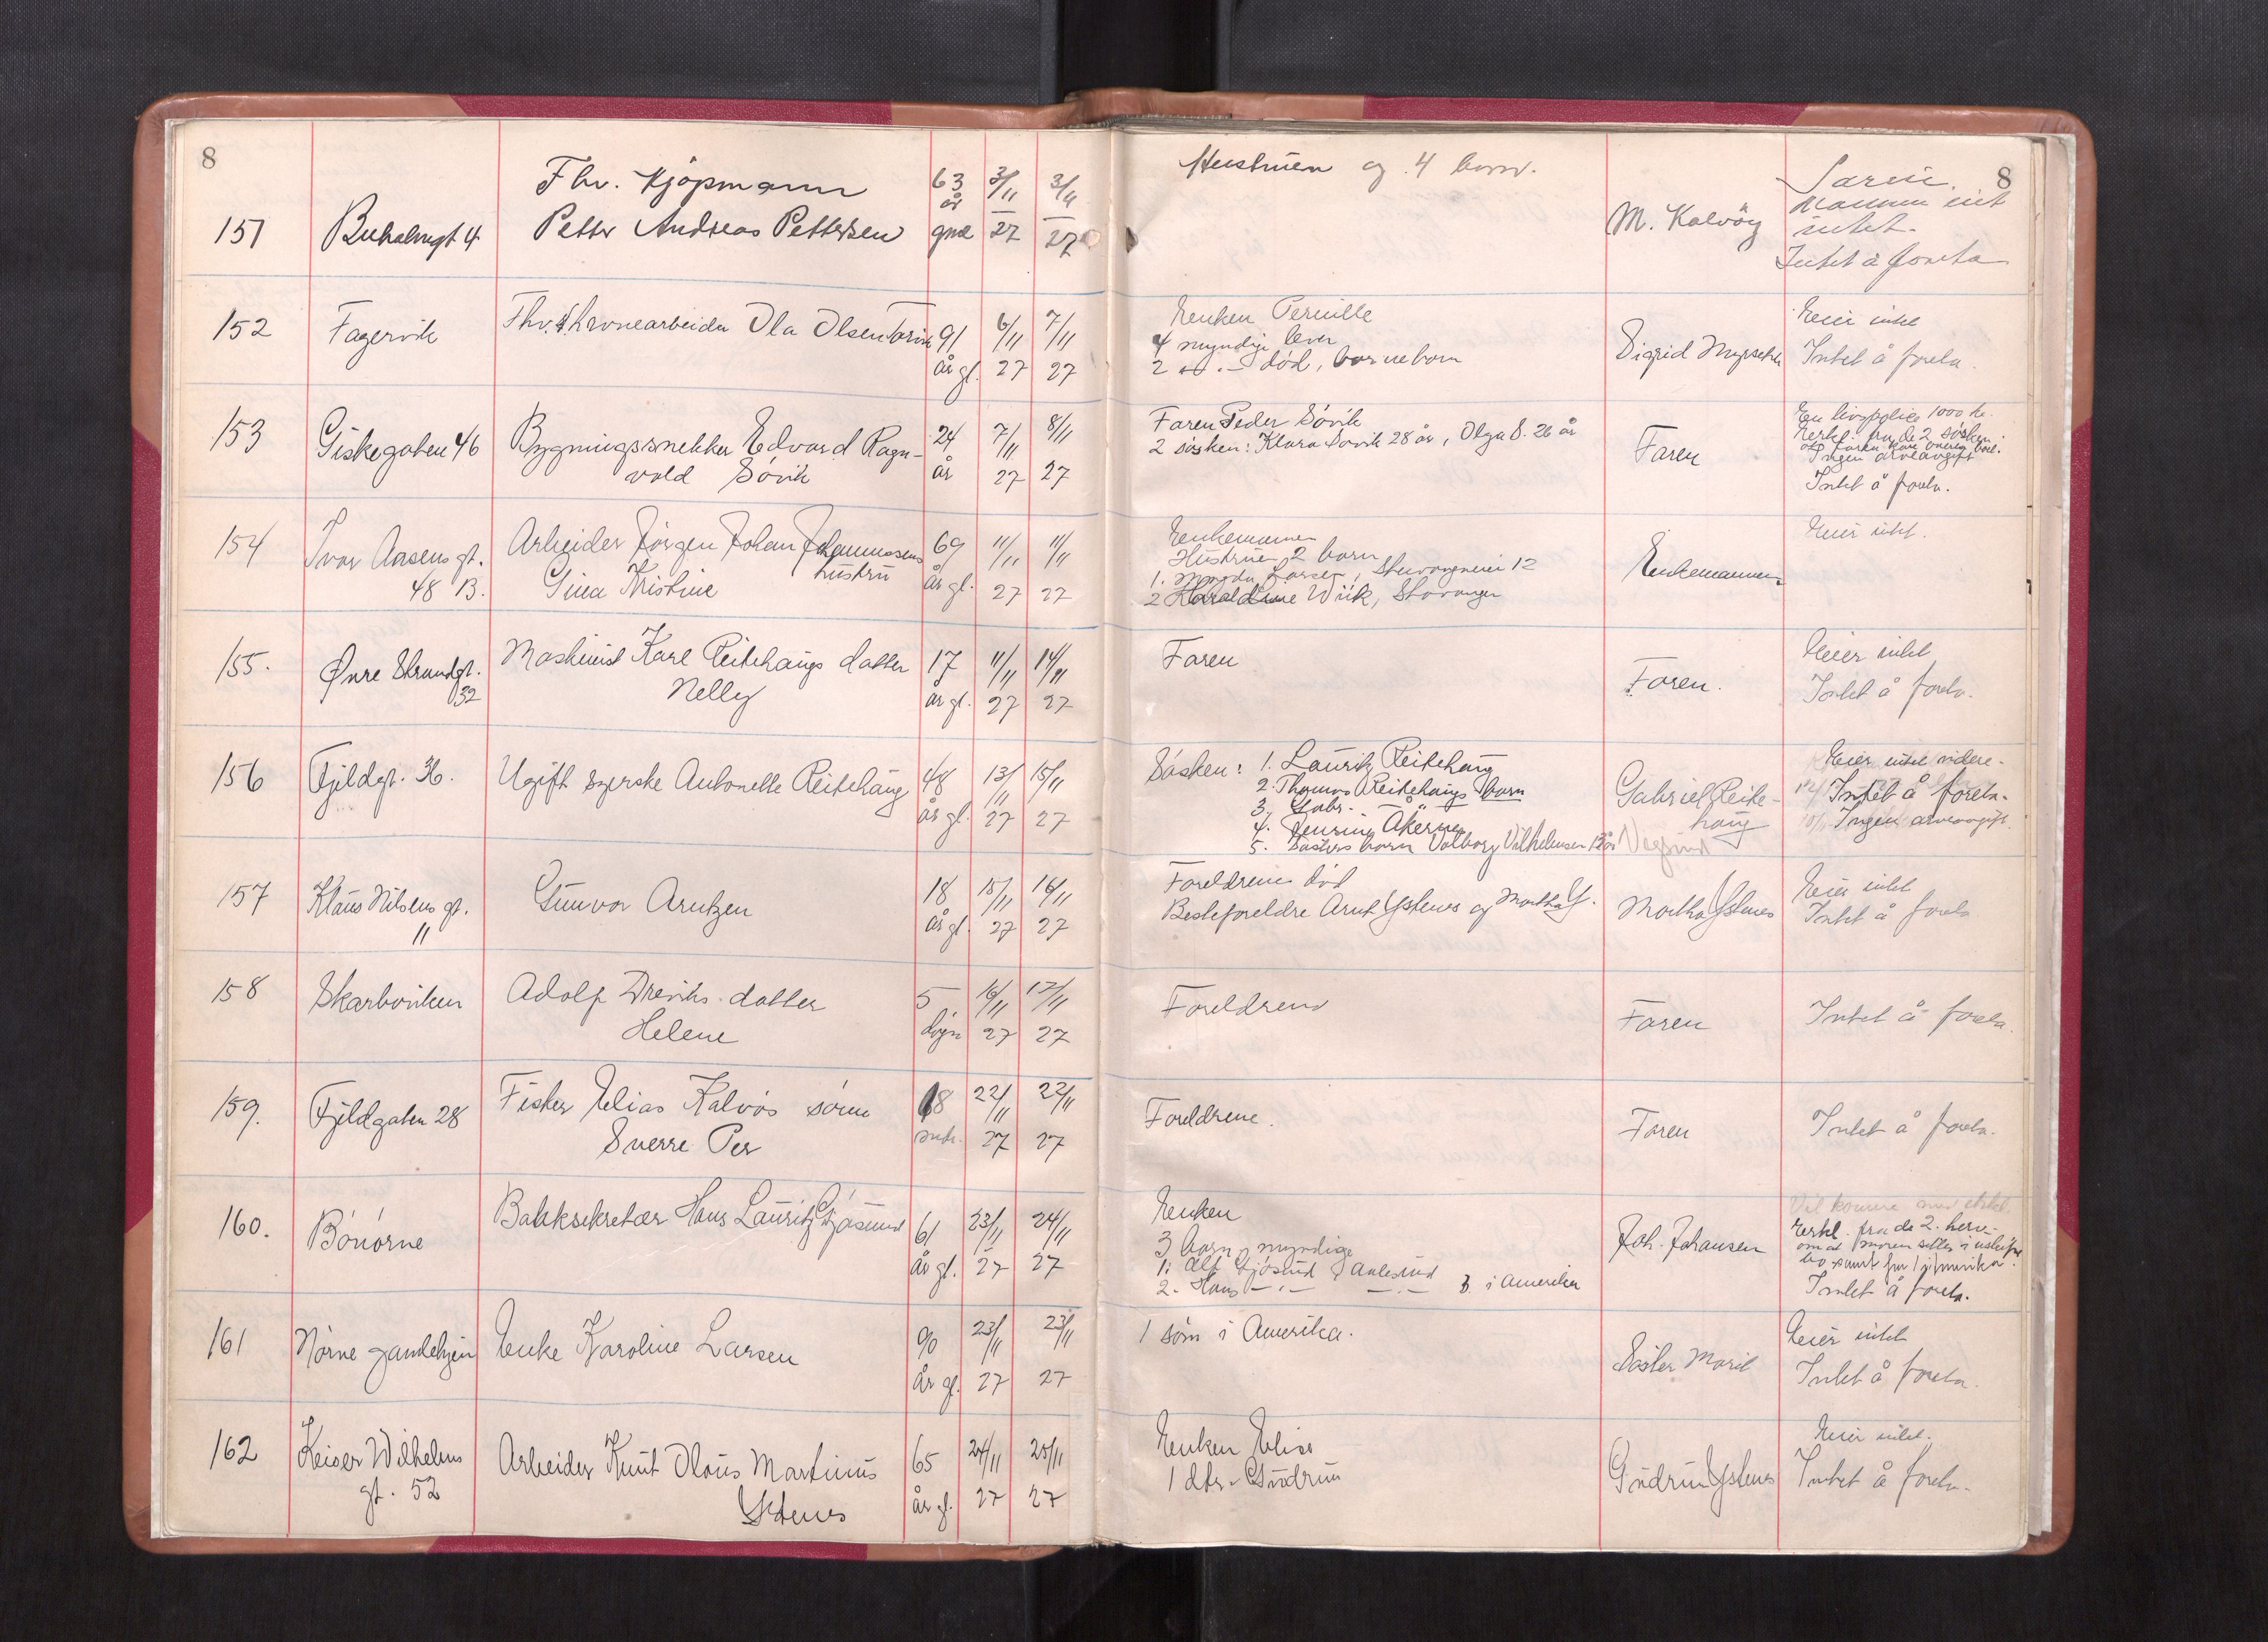 8
8
151
Buholmgt 4
Fhv. Kjöpmann
Petter Andreas Pettersen
63 år gml
3/11 27
3/11 27
Hustruen og 4 born.
M. Kalvöy
intet.
Intet å foreta
152
Fagervik
Fhv. arbeider Ola Olsen
91 år gl.
6/11 27
7/11 27
Enken Pernille
4 myndige lever
2 død, barneborn
Sigrid Myrseth
Eier intet
Intet å foreta.
153
Giskegaten 46
Bygningssnekker Edvard Ragn-
vald Sövik
24 år
7/11 27
8/11 27
Faren Peder Sövik
2 sösken: Klara Sövik 28 år, Olga S. 26 år
Faren
En livspolice 1000 kr.
Erkl. fra de 2 sösken
Ingen arveavgift
Intet å foreta.
154
Ivar Aasens gt.
48 B.
Arbeider Jörgen Johan Johannessens
hustru
Gina Kristine
69 år gl.
11/11 27
11/11 27
Enkemannen
Hustruen 2 born
1. Larsen, Stavangveien 12
2 Wiik, Stavanger
Enkemannen
Eier intet.
155.
Øvre Strandgt.
32
Maskinist Karl Reitehaugs datter
Nelly
17 år gl.
11/11 27
14/11 27
Faren
Faren.
Eier intet
Intet å foreta.
156
Fjeldgt. 36.
Ugift syerske Antonette Reitehaug
48 år gl.
13/11 27
15/11 27
Sösken: 1. Lauritz Reitehaug
2. Thomas Reitehaugs born
3. Gabr. — " —
4. Åkernes
5. Sösters born Valborg Vilhelmsen 13 år
Gabriel Reite-
haug
Vegsund
Eier intet videre.
Intet å foreta.
Ingen arveavgift.
157
Klaus Nilsens gt.
11
Gunvor Arntzen
18 år gl.
15/11 27
16/11 27
Foreldrene död
Besteforeldre Arnt Ystenes og Martha Y.
Martha Ystenes
Eier intet
Intet å foreta
158
Skarbøviken
Adolf Dreviks datter
Helene
5 dögn
16/11 27
17/11 27
Foreldrene
Faren
Intet å foreta.
159.
Fjeldgaten 28
Fisker Elias Kalvös sönn
Sverre Per
8 mdr.
22/11 27
22/11 27
Foreldrene.
Faren
Intet å foreta.
160.
Bönörne
Banksekretær Hans Lauritz Gjösund
61 år gl.
23/11 27
24/11 27
Enken
3 born, myndige
1. Alf Gjösund, Aalesund
2. Hans — " — — " — 3. i Amerika
Joh. Johansen
Vil komme med erkl.
Erkl. fra de 2. herv.
om at moren sitter i uskiftet
bo samt fra 1 i Amerika.
Intet å foreta.
161
Nörve gamlehjem
Enke Karoline Larsen
90 år gl.
23/11 27
23/11 27
1 sönn i Amerika.
Söster Marit
Eier intet
Intet å foreta.
162
Keiser Wilhelms
gt. 52
Arbeider Knut Olaus Martinus
Ystenes
65 år gl.
24/11 27
25/11 27
Enken Elise
1 dtr. Gudrun
Gudrun Ystenes
Eier intet.
Intet å foreta.